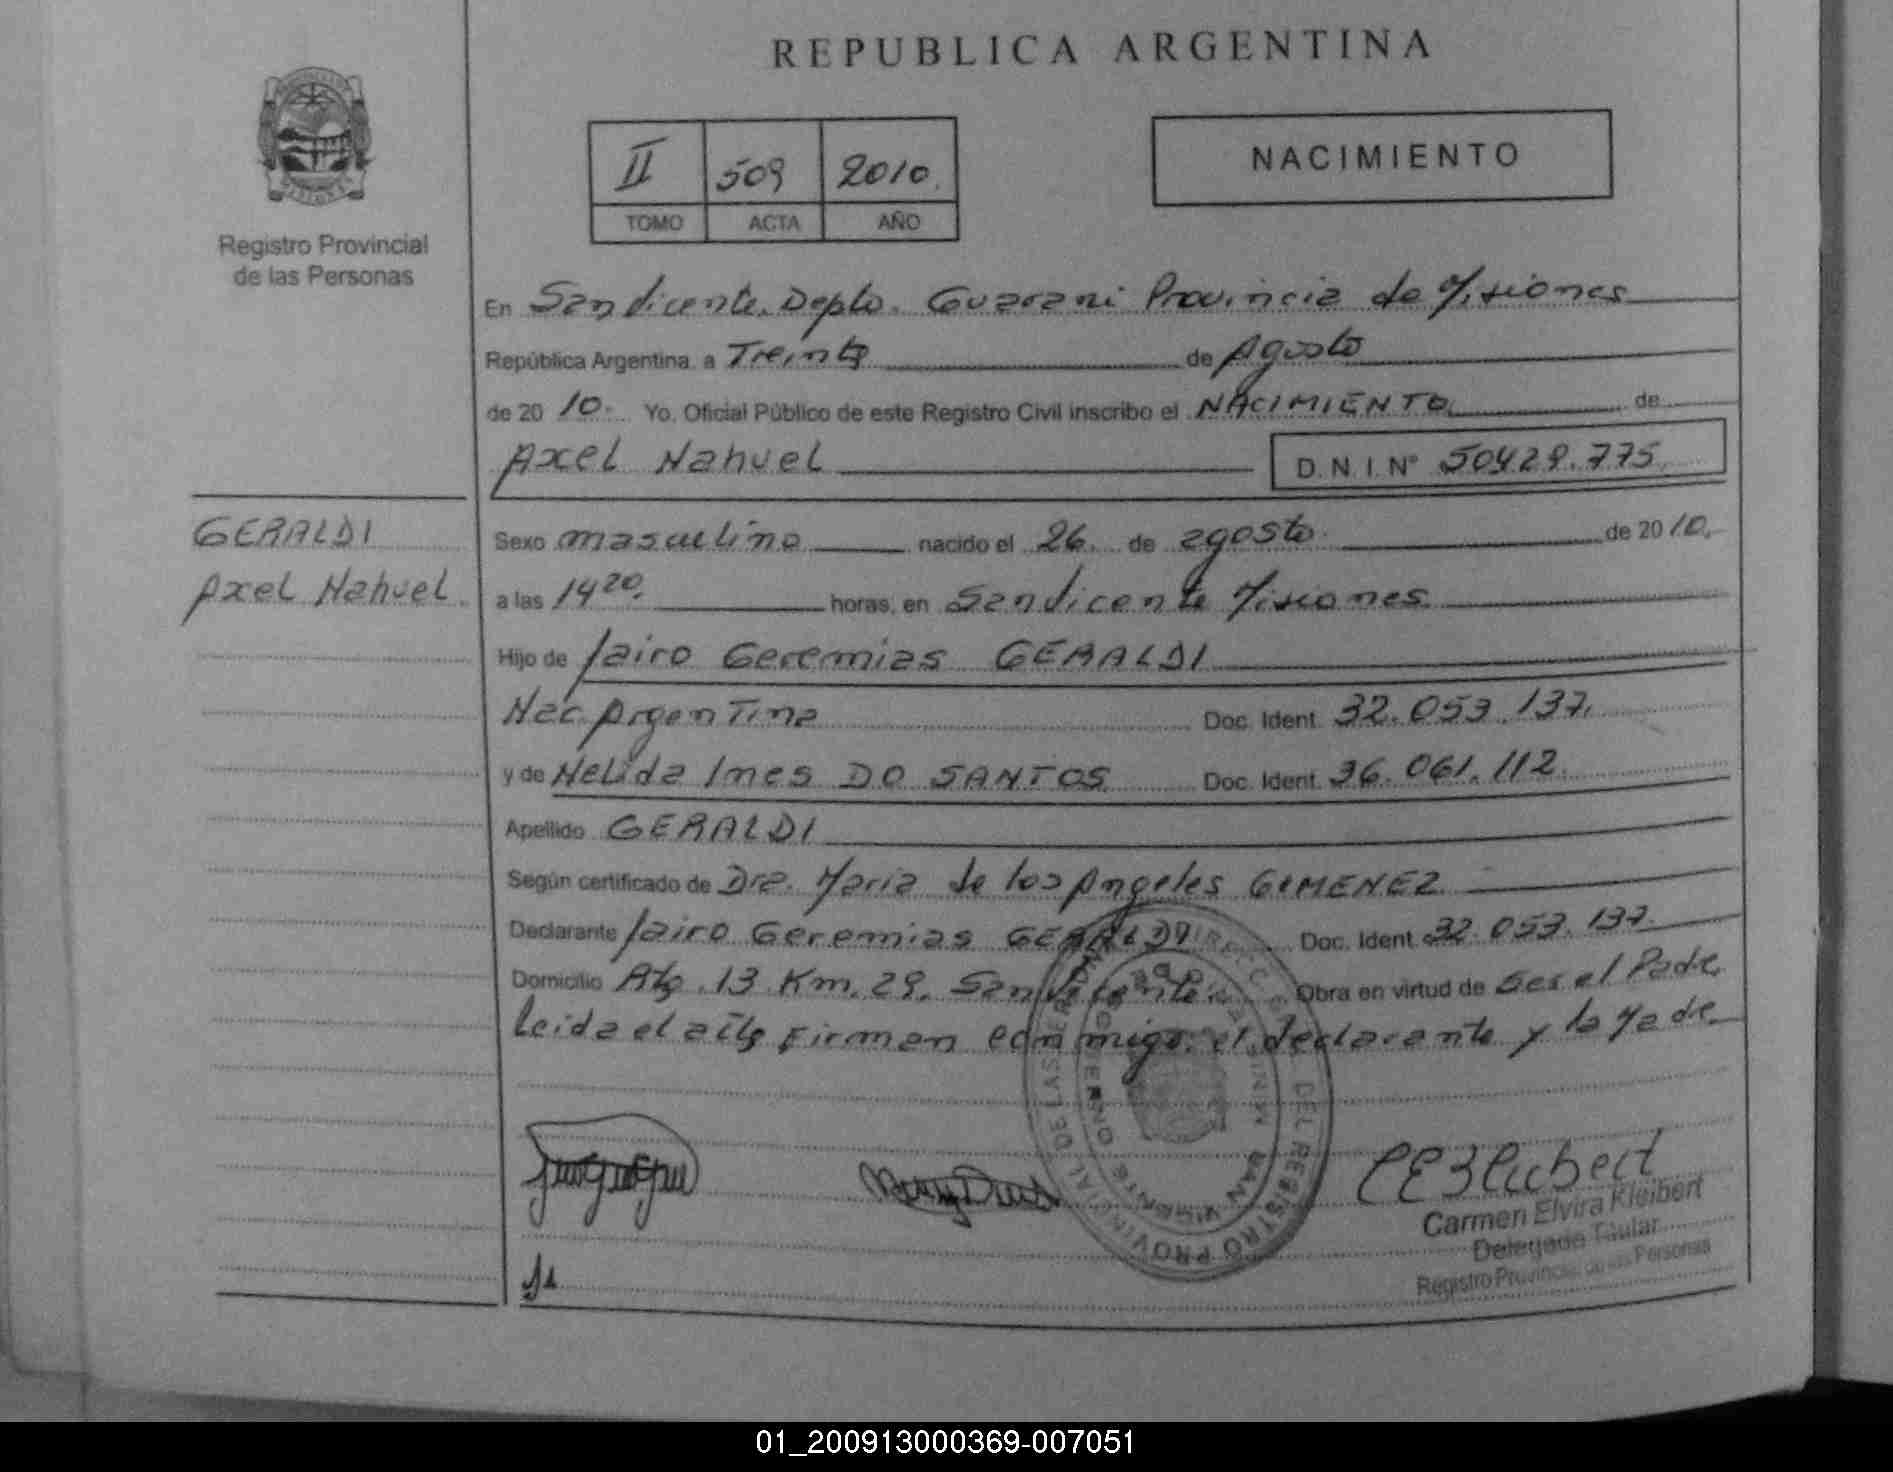 REPUBLICA ARGENTINA
II 509 2010.
TOMO ACTA AÑO
NACIMIENTO
Registro Provincial
de las Personas
En San Vicente. Depto. Guarani Provincia de Misiones
República Argentina. a Treinta de Agosto
de 20 10. Yo. Oficial Público de este Registro Civil inscribo el NACIMIENTO de
Axel Nahuel D. N. I. N° 50429.775.
GERALDI
Axel Nahuel.
Sexo masculino nacido el 26. de agosto de 20 10.
a las 14 20. horas, en San Vicente Misiones
Hijo de Jairo Geremias GERALDI
Nac. Argentina Doc. Ident. 32.053.137.
y de Nelida Ines DO SANTOS Doc. Ident. 36.061.112.
Apellido GERALDI
Según certificado de Dra. Maria de los Angeles GIMENEZ
Declarante Jairo Geremias GERALDI Doc. Ident. 32.053.137.
Domicilio Rta. 13 Km. 29. San Vicente. Obra en virtud de ser el Padre
leida el acta Firman conmigo. el declarante y la Madre
DEL REGISTRO PROVINCIAL DE LAS
SAN VICENTE
Carmen Elvira Kleibert
Delegada Titular
Registro Provincial de las Personas
01_200913000369-007051